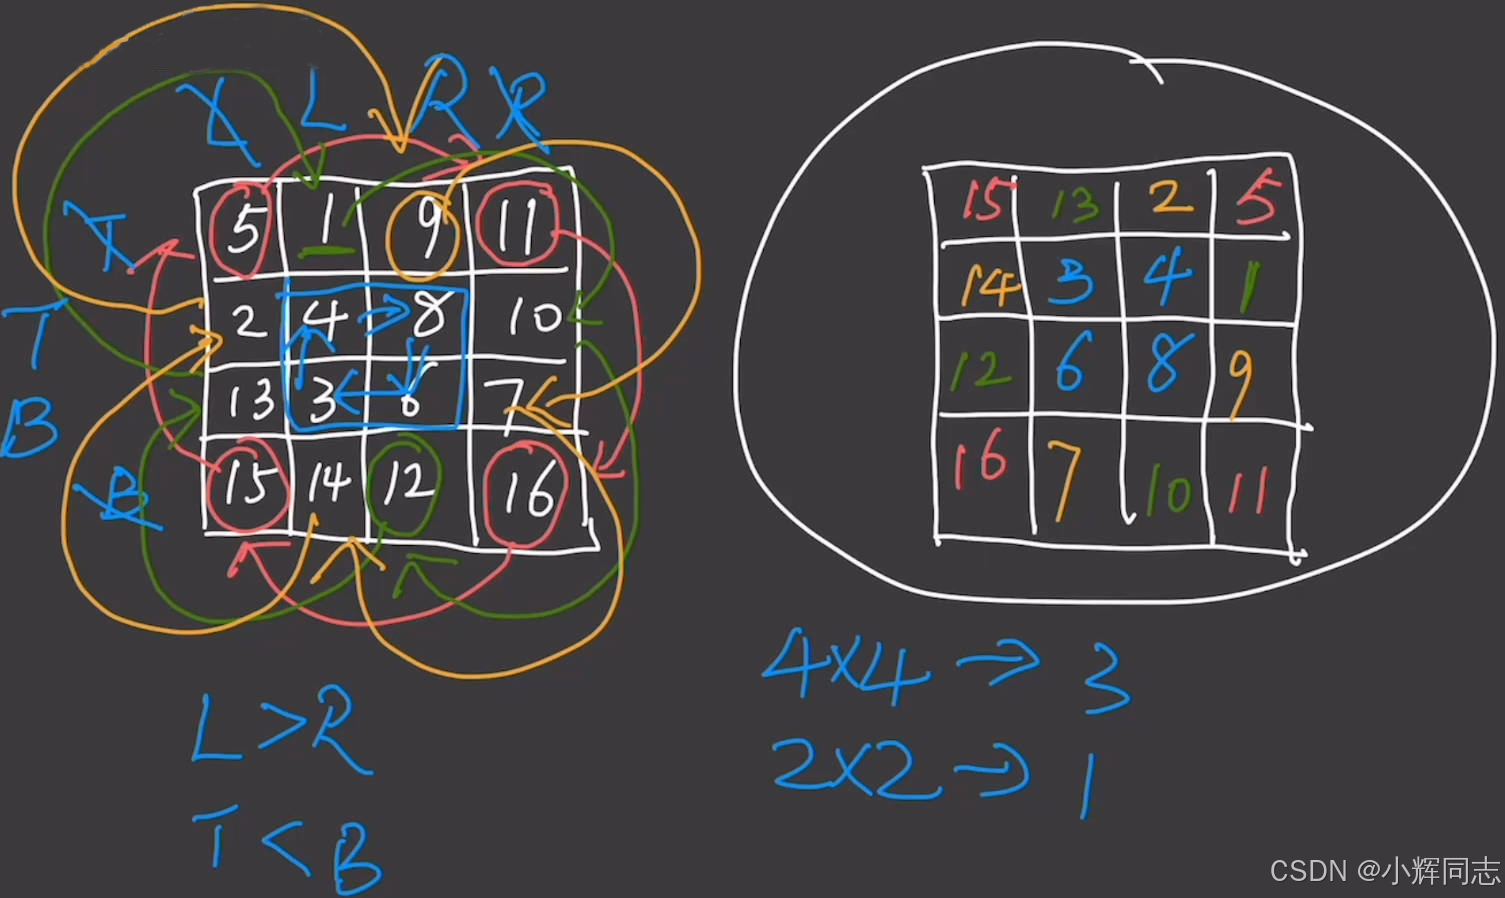 L R
L R
T
5 1 9 11
15 13 2 5
2 4 8 10
14 3 4 1
T
13 3 6 7
12 6 8 9
B
15 14 12 16
16 7 10 11
B
L>R
4×4→3
2×2→1
T<B
CSDN @小辉同志